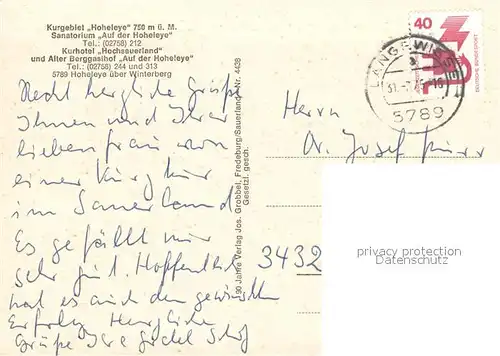 Kurgebiet „Hoheleye" 750 m ü. M.
Sanatorium „Auf der Hoheleye"
Tel.: (02758) 212
Kurhotel „Hochsauerland"
und Alter Berggasthof „Auf der Hoheleye"
Tel.: (02758) 244 und 313
5789 Hoheleye über Winterberg
Recht herzliche Grüße
Ihnen und Ihrer
lieben Frau von
einer Kurz Kur
im Sauerland
Es gefällt mir
sehr gut. Hoffentlich
hat es auch den gewünschten
Erfolg. Herzliche
Grüße Ihre
90 Jahre Verlag Jos. Grobbel, Fredeburg/Sauerland Nr. 4438
Gesetzl. gesch.
40
DEUTSCHE BUNDESPOST
LANGEWIESE
a
5789
Herrn
Dr. Josef
3432
privacy protection
Datenschutz